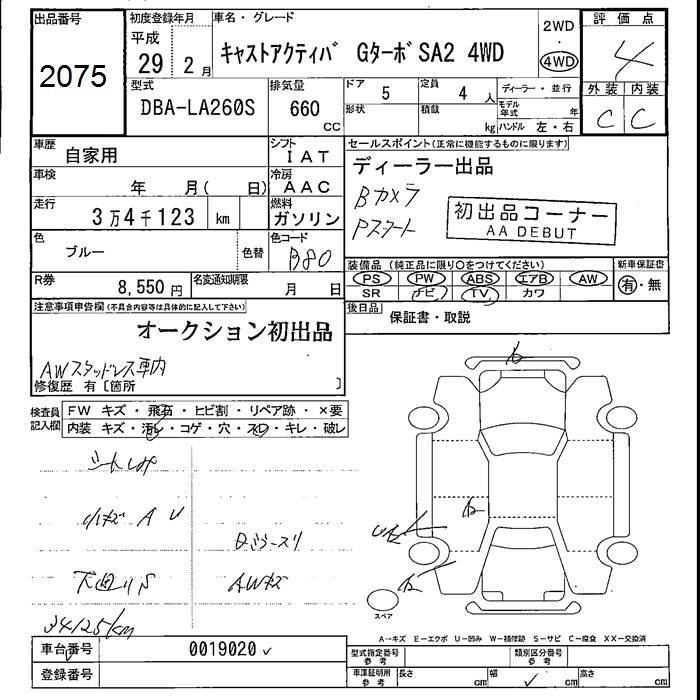 出品番号
2075
初度登録年月
平成
29 2 月
車名・グレード
キャストアクティバ GターボSA2 4WD
2WD
・
4WD
評価点
4
外装 内装
C C
型式
DBA-LA260S
排気量
660
CC
ドア
5
形状
定員
4 人
積載
kg
ディーラー・並行
モデル
年式 年
ハンドル 左・右
車歴
自家用
シフト
IAT
車検
年 月( 日)
冷房
AAC
走行
3万4千123 km
燃料
ガソリン
色
ブルー
色替
色コード
B80
R券
8,550円
名変通知期限
月 日
セールスポイント(正常に機能するものに限ります)
ディーラー出品
Bカメラ
Pスタート
初出品コーナー
AA DEBUT
装備品 (純正品に限り○をつけてください)
PS PW ABS エアB AW
SR ナビ TV カワ
新車保証書
有・無
後日品
保証書・取説
注意事項申告欄(不具合内容等は具体的に記入して下さい)
オークション初出品
AWスタッドレス車内
修復歴 有〔箇所 〕
検査員
記入欄
FW キズ・飛石・ヒビ割・リペア跡・×要
内装 キズ・汚レ・コゲ・穴・スレ・キレ・破レ
小キズ A U
AWキズ
下廻りS
34125km
スペア
A-キズ E-エクボ U-凹み W-補修跡 S-サビ C-腐食 XX-交換済
車台番号
0019020
登録番号
型式指定番号
参考
類別区分番号
参考
車庫証明用
参考
長さ cm
幅 cm
高さ cm